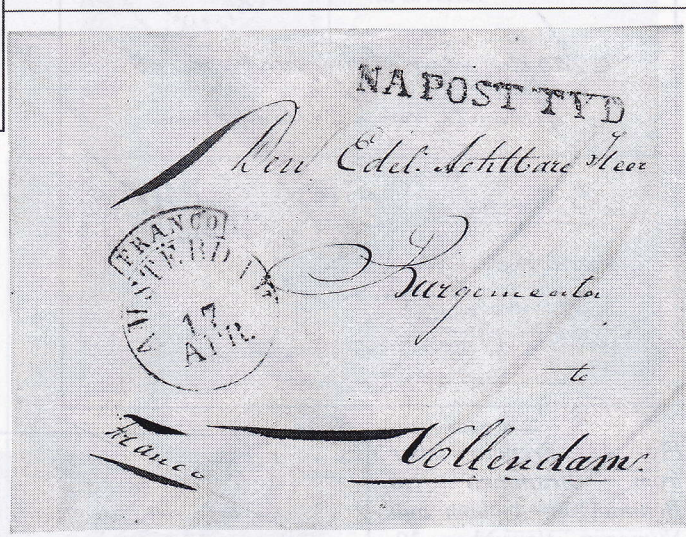 NA POST TYD
Den Edel: Achtbare Heer
FRANCO
AMSTERDAM
17
APR.
Burgemeester
te
Franco
Vollendam.